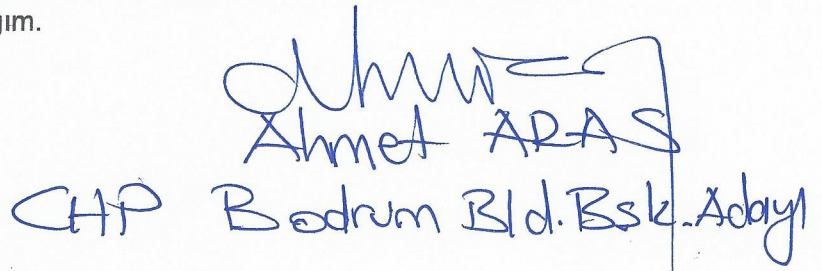 ğım.
Ahmet ARAS
CHP Bodrum Bld. Bşk. Adayı